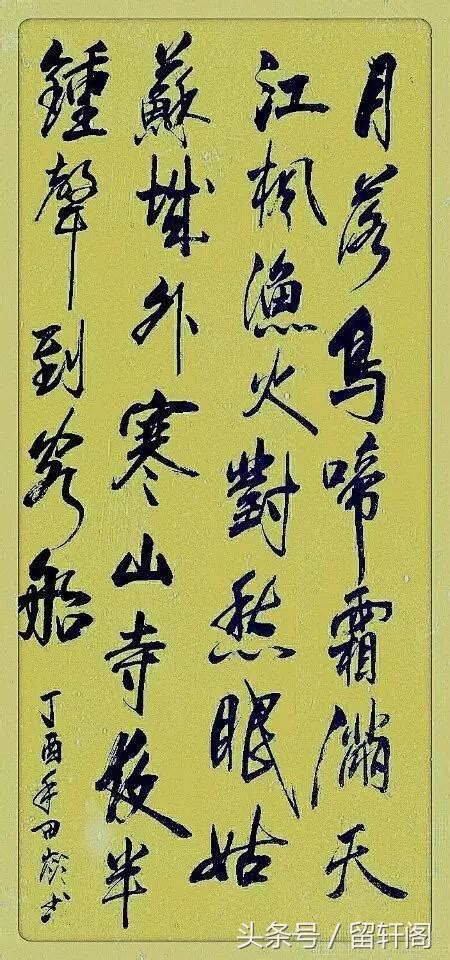 月落烏啼霜滿天
江楓漁火對愁眠姑
蘇城外寒山寺夜半
鍾聲到客船
丁酉年田
头条号 / 留轩阁